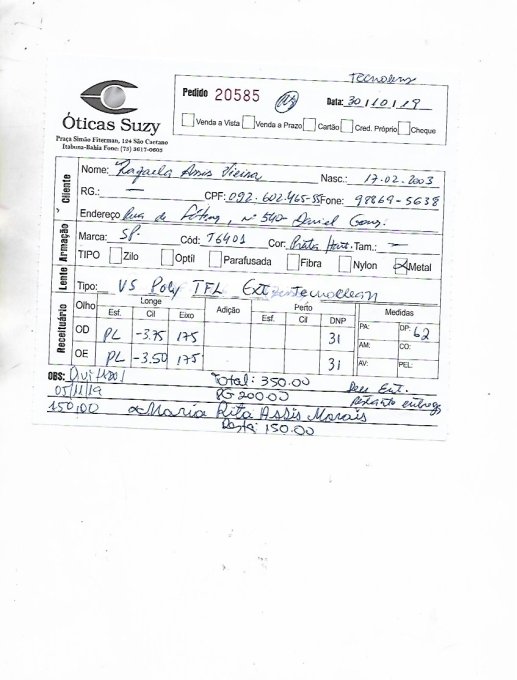 Tecnolens
Pedido 20585 Data: 30/10/19
Óticas Suzy
Venda a Vista Venda a Prazo Cartão Cred. Próprio Cheque
Praça Simão Fiterman, 124 São Caetano
Itabuna-Bahia Fone: (73) 3617-0603
Cliente
Nome: Rafaela Assis Vieira Nasc.: 17.02.2003
RG.: CPF: 092.602.465-55 Fone: 98869-5638
Endereço Rua de nº 540- Daniel Gomes
Armação
Marca: SP. Cód: 76401 Cor: Prata Tam.: -
TIPO Zilo Optil Parafusada Fibra Nylon Metal
Lente
Tipo: VS Poly TFL Tecnoclean
Receituário
Olho Longe Adição Perto DNP Medidas
Esf. Cil Eixo Esf. Cil PA: DP: 62
OD PL -3.75 175 31 AM: CO:
OE PL -3.50 175 31 AV: PEL:
OBS: Total: 350.00
05/11/19 PG 200.00 Restante entrega
150,00 Maria Rita Assis Morais
Resta: 150.00